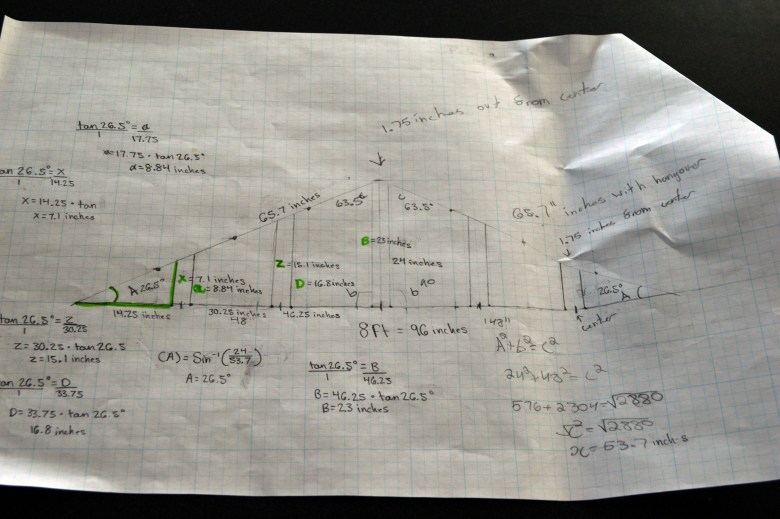 1.75 inches out from center
tan 26.5° = a
1 17.75
a=17.75 · tan 26.5°
a=8.84 inches
an 26.5° = x
1 14.25
x=14.25 · tan
x=7.1 inches
65.7 inches
63.5°
c
63.5°
65.7" inches with hangover
1.75 inches from center
B=23 inches
24 inches
Z=15.1 inches
D=16.8 inches
x=7.1 inches
a=8.84 inches
A 26.5°
b
b
90
26.5°
A
14.25 inches
30.25 inches
48
46.25 inches
8ft = 96 inches
148"
center
tan 26.5° = Z
1 30.25
Z=30.25 · tan 26.5
Z=15.1 inches
an 26.5° = D
1 33.75
D=33.75 · tan 26.5°
16.8 inches
(A) = Sin⁻¹(24/53.7)
A=26.5°
tan 26.5° = B
1 46.25
B=46.25 · tan 26.5°
B=23 inches
A²+b²=c²
24²+48²=c²
576+2304=√2880
√x²=√2880
x=53.7 inches